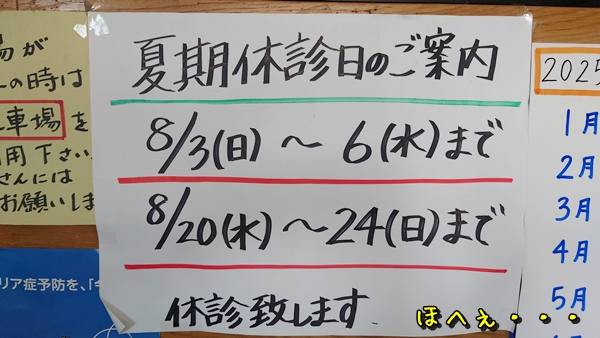 夏期休診日のご案内
8/3(日)～6(水)まで
8/20(水)～24(日)まで
休診致します
場が
の時は
車場を
用下さい
さんには
お願いしま
リア症予防を、「
2025
1月
2月
3月
4月
5月
ほへぇ・・・